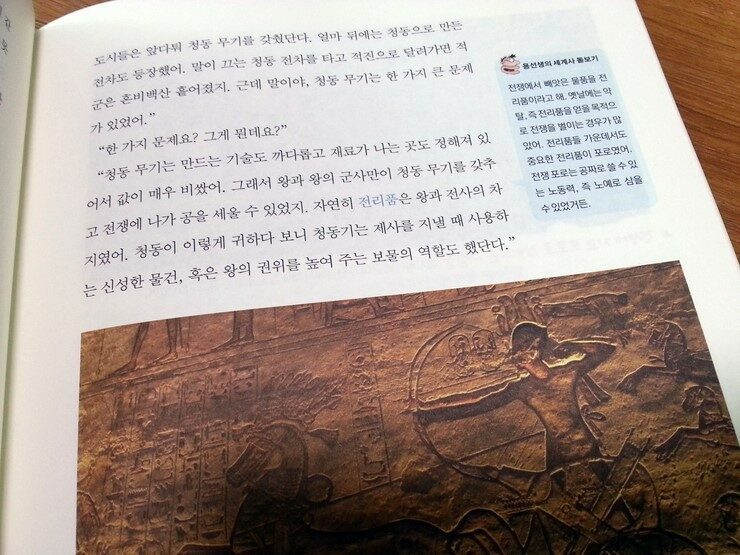 도시들은 앞다퉈 청동 무기를 갖췄단다. 얼마 뒤에는 청동으로 만든
전차도 등장했어. 말이 끄는 청동 전차를 타고 적진으로 달려가면 적
군은 혼비백산 흩어졌지. 근데 말이야, 청동 무기는 한 가지 큰 문제
가 있었어.”
“한 가지 문제요? 그게 뭔데요?”
“청동 무기는 만드는 기술도 까다롭고 재료가 나는 곳도 정해져 있
어서 값이 매우 비쌌어. 그래서 왕과 왕의 군사만이 청동 무기를 갖추
고 전쟁에 나가 공을 세울 수 있었지. 자연히 전리품은 왕과 전사의 차
지였어. 청동이 이렇게 귀하다 보니 청동기는 제사를 지낼 때 사용하
는 신성한 물건, 혹은 왕의 권위를 높여 주는 보물의 역할도 했단다.”
용선생의 세계사 돋보기
전쟁에서 빼앗은 물품을 전
리품이라고 해. 옛날에는 약
탈, 즉 전리품을 얻을 목적으
로 전쟁을 벌이는 경우가 많
았어. 전리품들 가운데서도
중요한 전리품이 포로였어.
전쟁 포로는 공짜로 쓸 수 있
는 노동력, 즉 노예로 삼을
수 있었거든.